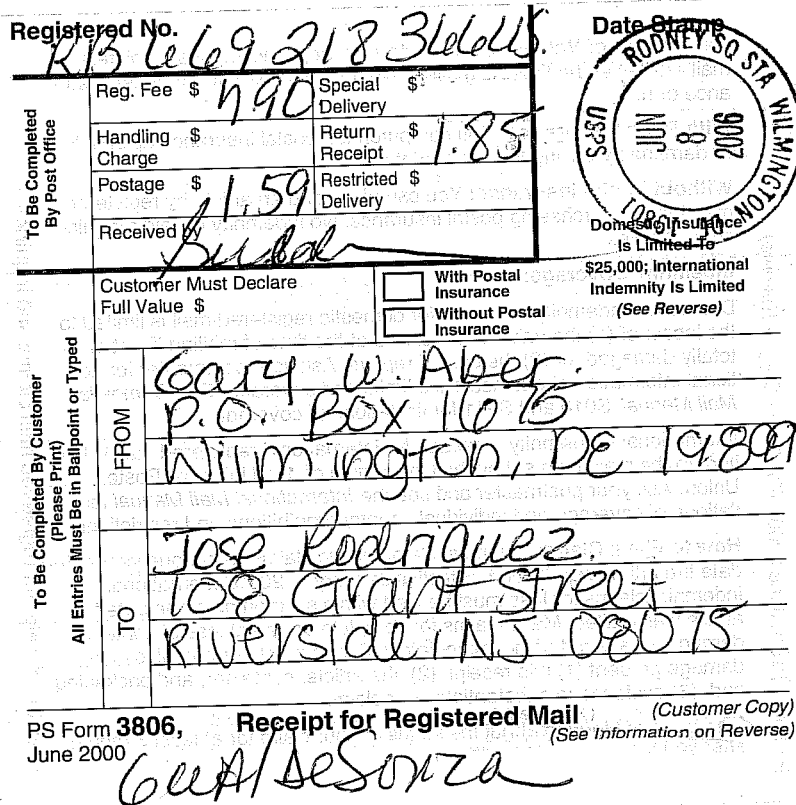 Registered No.
Date Stamp
RB 669 218 366 US
To Be Completed By Post Office
Reg. Fee $ 7.90
Special Delivery $
Handling Charge $
Return Receipt $ 1.85
Postage $ 1.59
Restricted Delivery $
Received by
RODNEY SQ STA WILMINGTON DE 19801
USPS
JUN
8
2006
Domestic Insurance
Is Limited To
$25,000; International
Indemnity Is Limited
(See Reverse)
Customer Must Declare
Full Value $
With Postal
Insurance
Without Postal
Insurance
To Be Completed By Customer
(Please Print)
All Entries Must Be in Ballpoint or Typed
FROM
Gary W. Aber.
P.O. BOX 1675
Wilmington, DE 19899
TO
Jose Rodriguez.
108 Grant Street
Riverside, NJ 08075
PS Form 3806,
June 2000
Receipt for Registered Mail
(Customer Copy)
(See Information on Reverse)
GWA/DeSouza